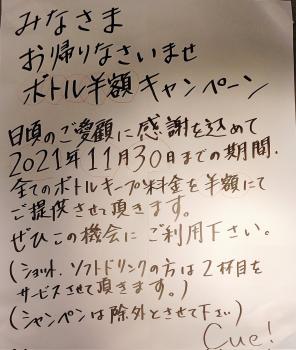 みなさま
お帰りなさいませ
ボトル半額キャンペーン
日頃のご愛顧に感謝を込めて
2021年11月30日までの期間、
全てのボトルキープ料金を半額にて
ご提供させて頂きます。
ぜひこの機会にご利用下さい。
(ショット、ソフトドリンクの方は2杯目を
サービスさせて頂きます。)
(シャンペンは除外とさせて下さい)
Cue!